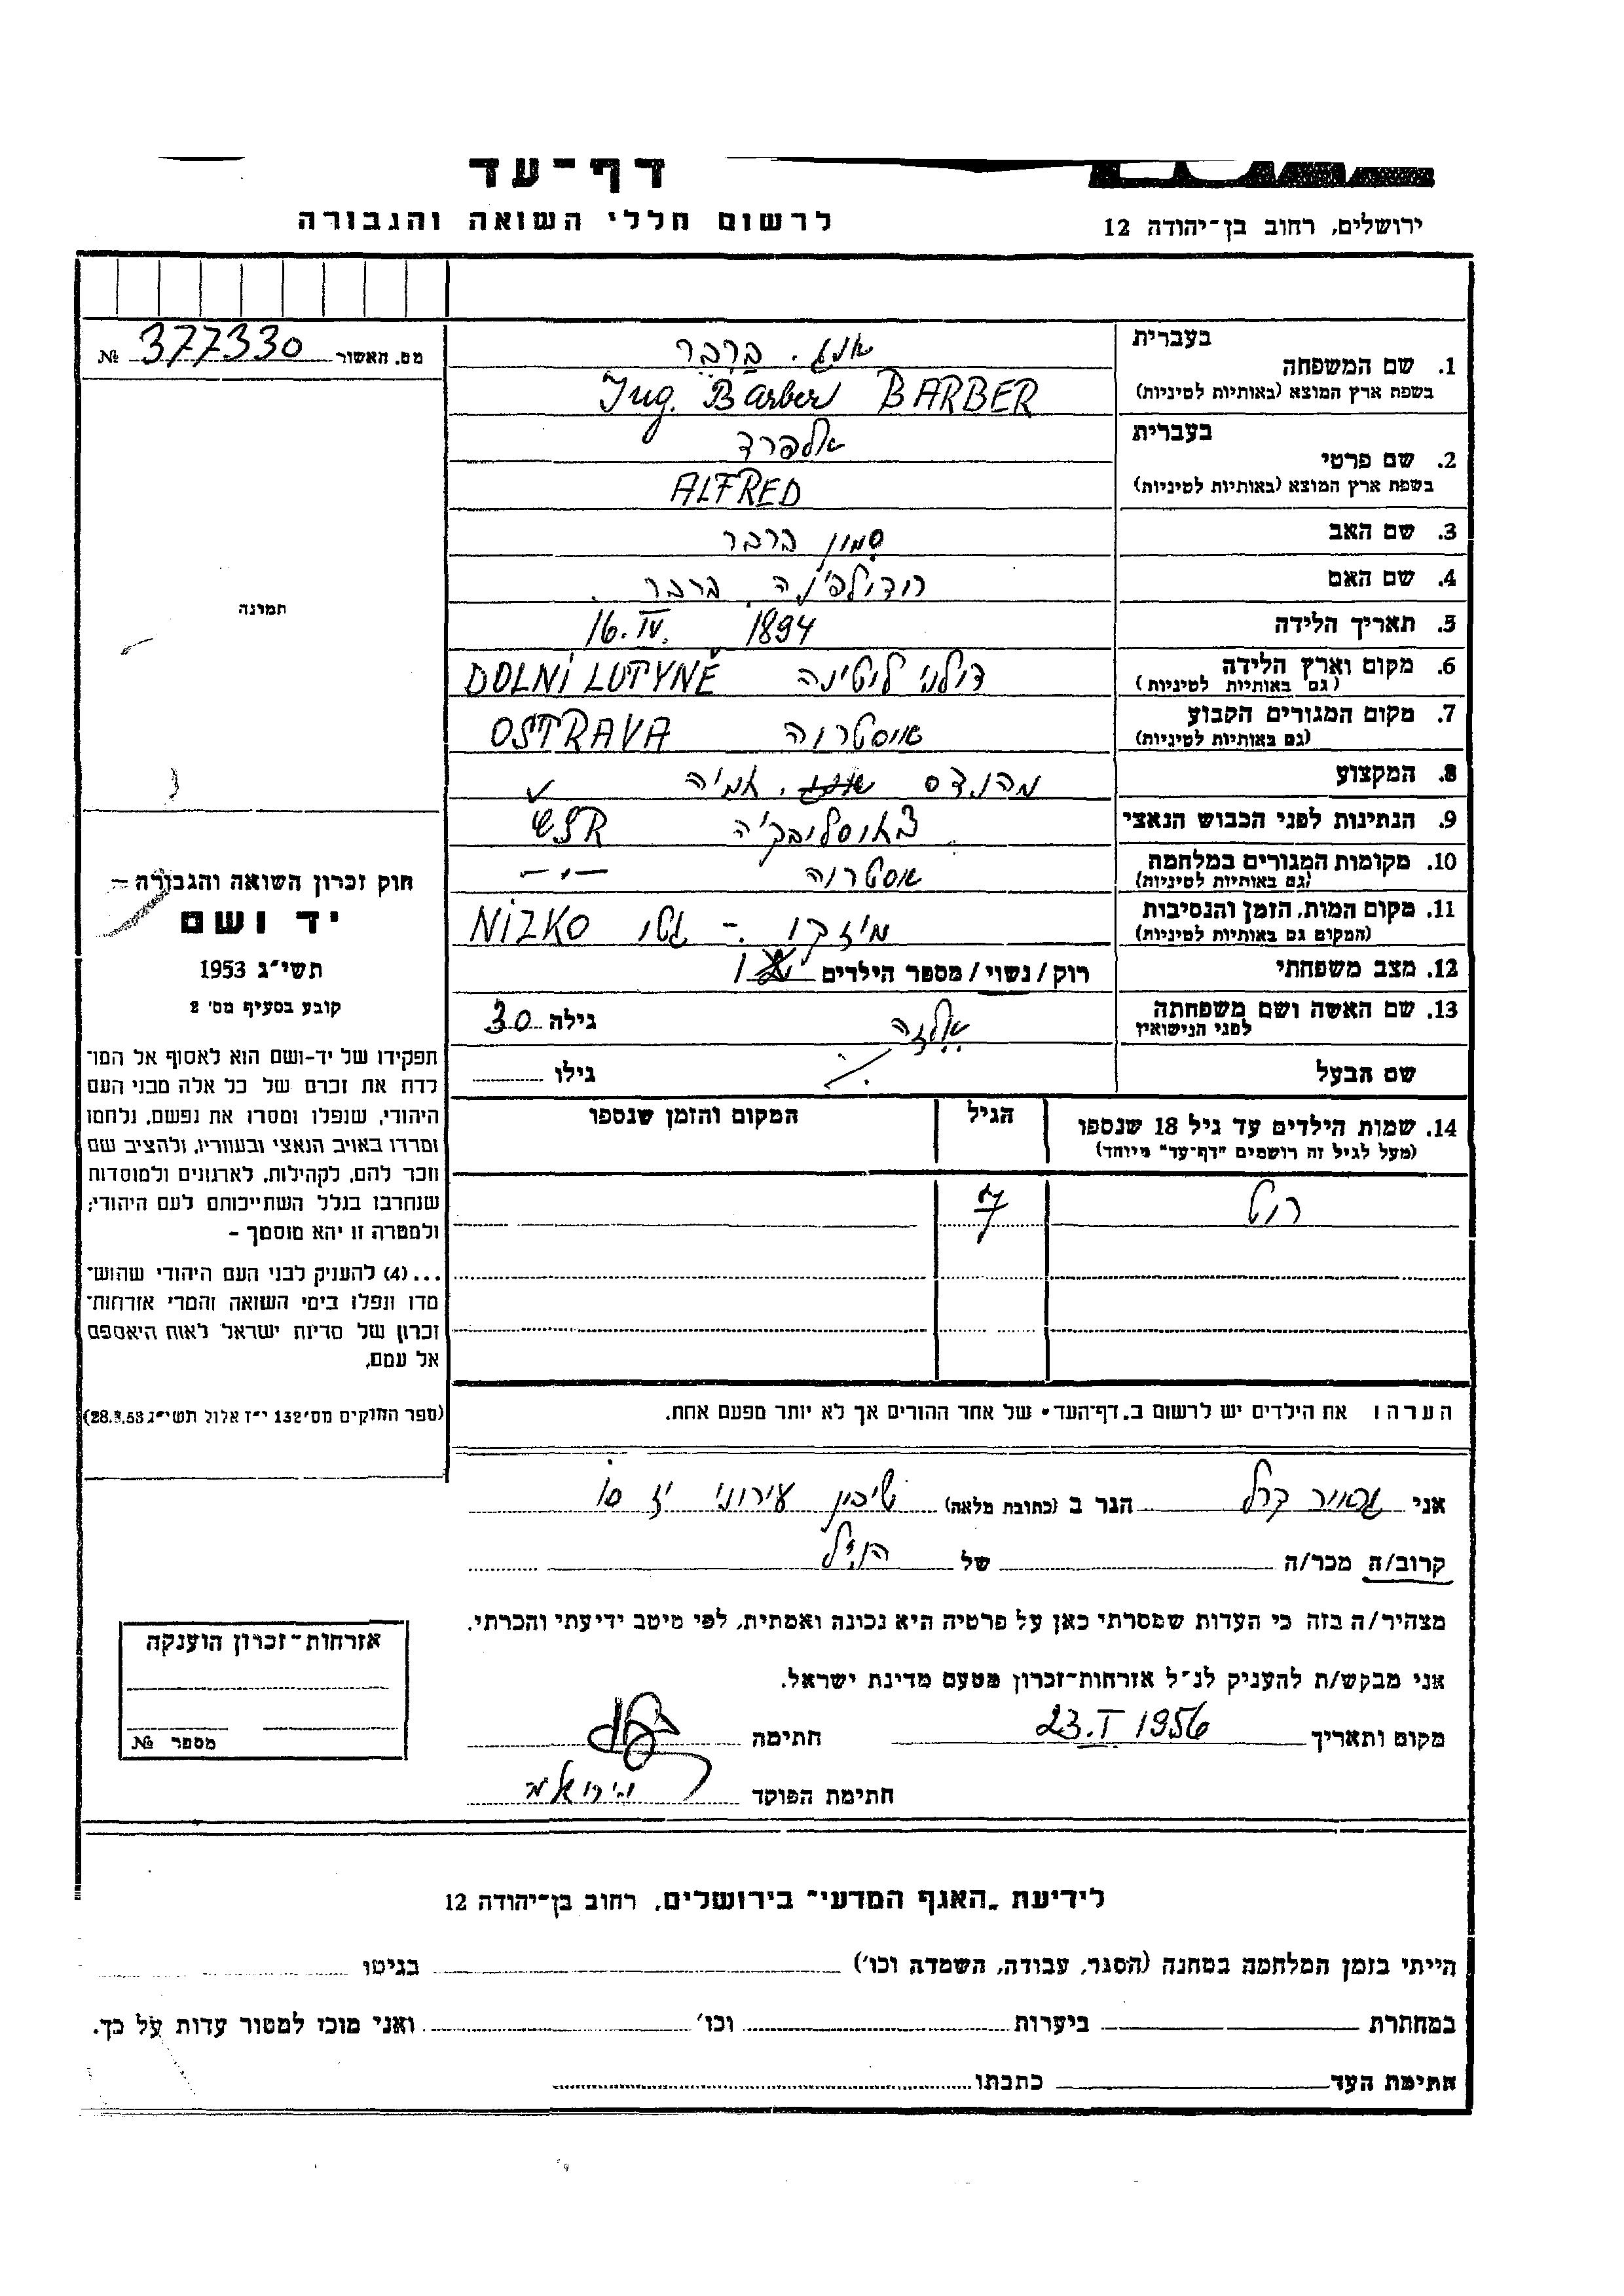 דף-עד
לרשום חללי השואה והגבורה
ירושלים, רחוב בן-יהודה 12
מס. האשור 377330 №
בעברית
1. שם המשפחה אינג. ברבר
בשפת ארץ המוצא (באותיות לטיניות) Ing. Barber BARBER
בעברית
2. שם פרטי אלפרד
בשפת ארץ המוצא (באותיות לטיניות) ALFRED
3. שם האב סמון ברבר
4. שם האם רודולפינה ברבר
5. תאריך הלידה 16. IV. 1894
6. מקום וארץ הלידה דולני לוטינה DOLNI LUTYNĚ
(גם באותיות לטיניות)
7. מקום המגורים הקבוע אוסטרוה OSTRAVA
(גם באותיות לטיניות)
8. המקצוע מהנדס
9. הנתינות לפני הכבוש הנאצי ČSR
10. מקומות המגורים במלחמה אוסטרוה -"-
(גם באותיות לטיניות)
11. מקום המות, הזמן והנסיבות ניזקו - גטו NIZKO
(המקום גם באותיות לטיניות)
12. מצב משפחתי רוק/נשוי/מספר הילדים 1
13. שם האשה ושם משפחתה אלזה גילה 30
לפני הנישואין
שם הבעל גילו
14. שמות הילדים עד גיל 18 שנספו הגיל המקום והזמן שנספו
(מעל לגיל זה רושמים "דף-עד" מיוחד)
רוט 7
תמונה
חוק זכרון השואה והגבורה –
יד ושם
תשי"ג 1953
קובע בסעיף מס' 2
תפקידו של יד-ושם הוא לאסוף אל המו־
לדת את זכרם של כל אלה מבני העם
היהודי, שנפלו ומסרו את נפשם, נלחמו
ומרדו באויב הנאצי ובעוזריו, ולהציב שם
וזכר להם, לקהילות, לארגונים ולמוסדות
שנחרבו בגלל השתייכותם לעם היהודי;
ולמטרה זו יהא מוסמך –
...(4) להעניק לבני העם היהודי שהוש־
מדו ונפלו בימי השואה והמרי אזרחות־
זכרון של מדינת ישראל לאות היאספם
אל עמם.
(ספר החוקים מס' 132 י"ז אלול תשי"ג 28.8.53)
הערה: את הילדים יש לרשום ב"דף-העד" של אחד ההורים אך לא יותר מפעם אחת.
אני קרל הגר ב (כתובת מלאה) שיכון עירוני
קרוב/ה מכר/ה של הנ"ל
מצהיר/ה בזה כי העדות שמסרתי כאן על פרטיה היא נכונה ואמתית, לפי מיטב ידיעתי והכרתי.
אני מבקש/ת להעניק לנ"ל אזרחות-זכרון מטעם מדינת ישראל.
מקום ותאריך 23.I 1956 חתימה
חתימת הפוקד
אזרחות-זכרון הוענקה
מספר №
לידיעת "האגף המדעי" בירושלים, רחוב בן-יהודה 12
הייתי בזמן המלחמה במחנה (הסגר, עבודה, השמדה וכו') בגיטו
במחתרת ביערות וכו' ואני מוכן למסור עדות על כך.
חתימת העד כתבתו